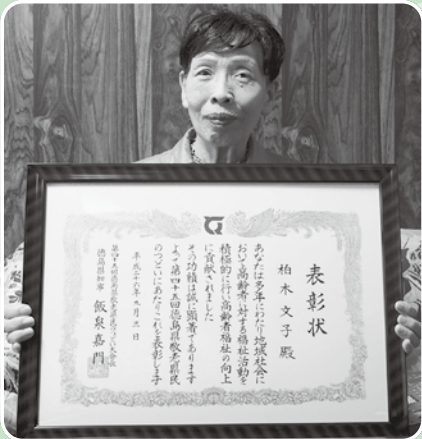 表彰状
柏木文子殿
あなたは多年にわたり地域社会に
おいて高齢者に対する福祉活動を
積極的に行い高齢者福祉の向上
に貢献されました
その功績は誠に顕著であります
よって第四十五回徳島県敬老県民
のつどいにあたりこれを表彰します
平成二十六年九月三日
徳島県知事 飯泉嘉門